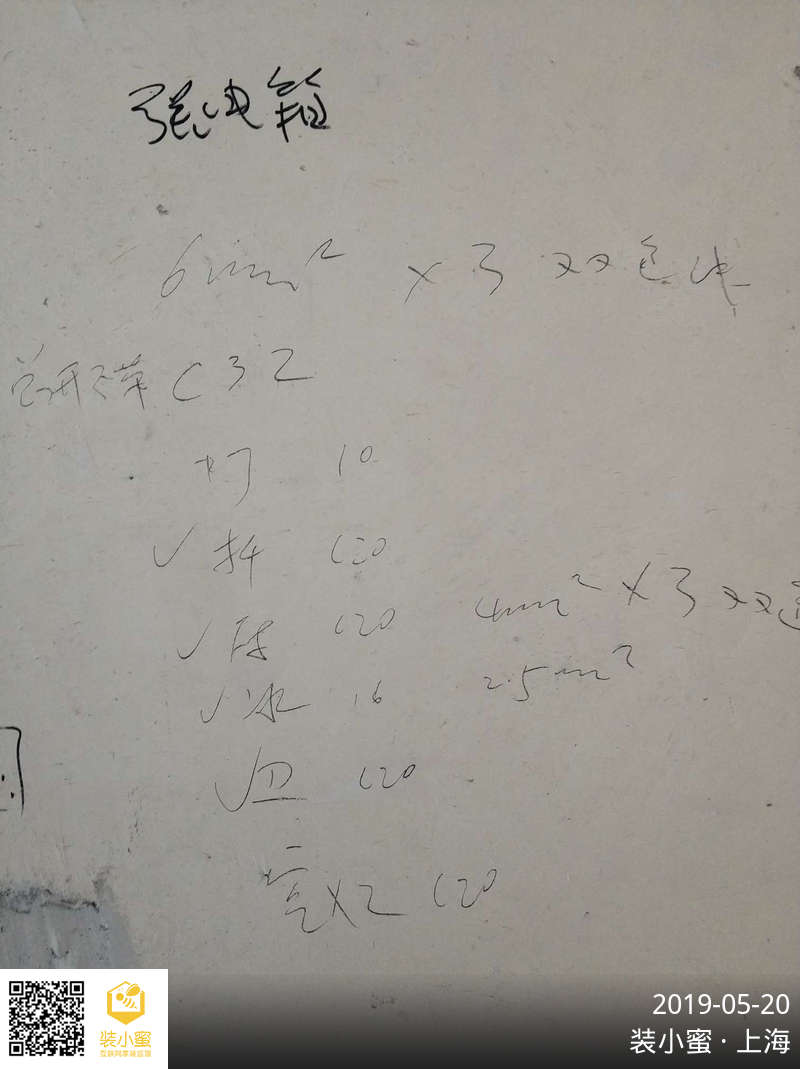 强电箱
6mm² ×3 双色线
总开 C32
灯 10
✓ 插 C20
✓ 厨 C20 4mm² ×3 双色
✓ 冰 16 2.5m²
✓ 卫 C20
空×2 C20
2019-05-20
装小蜜
互联网家装运营
装小蜜 · 上海